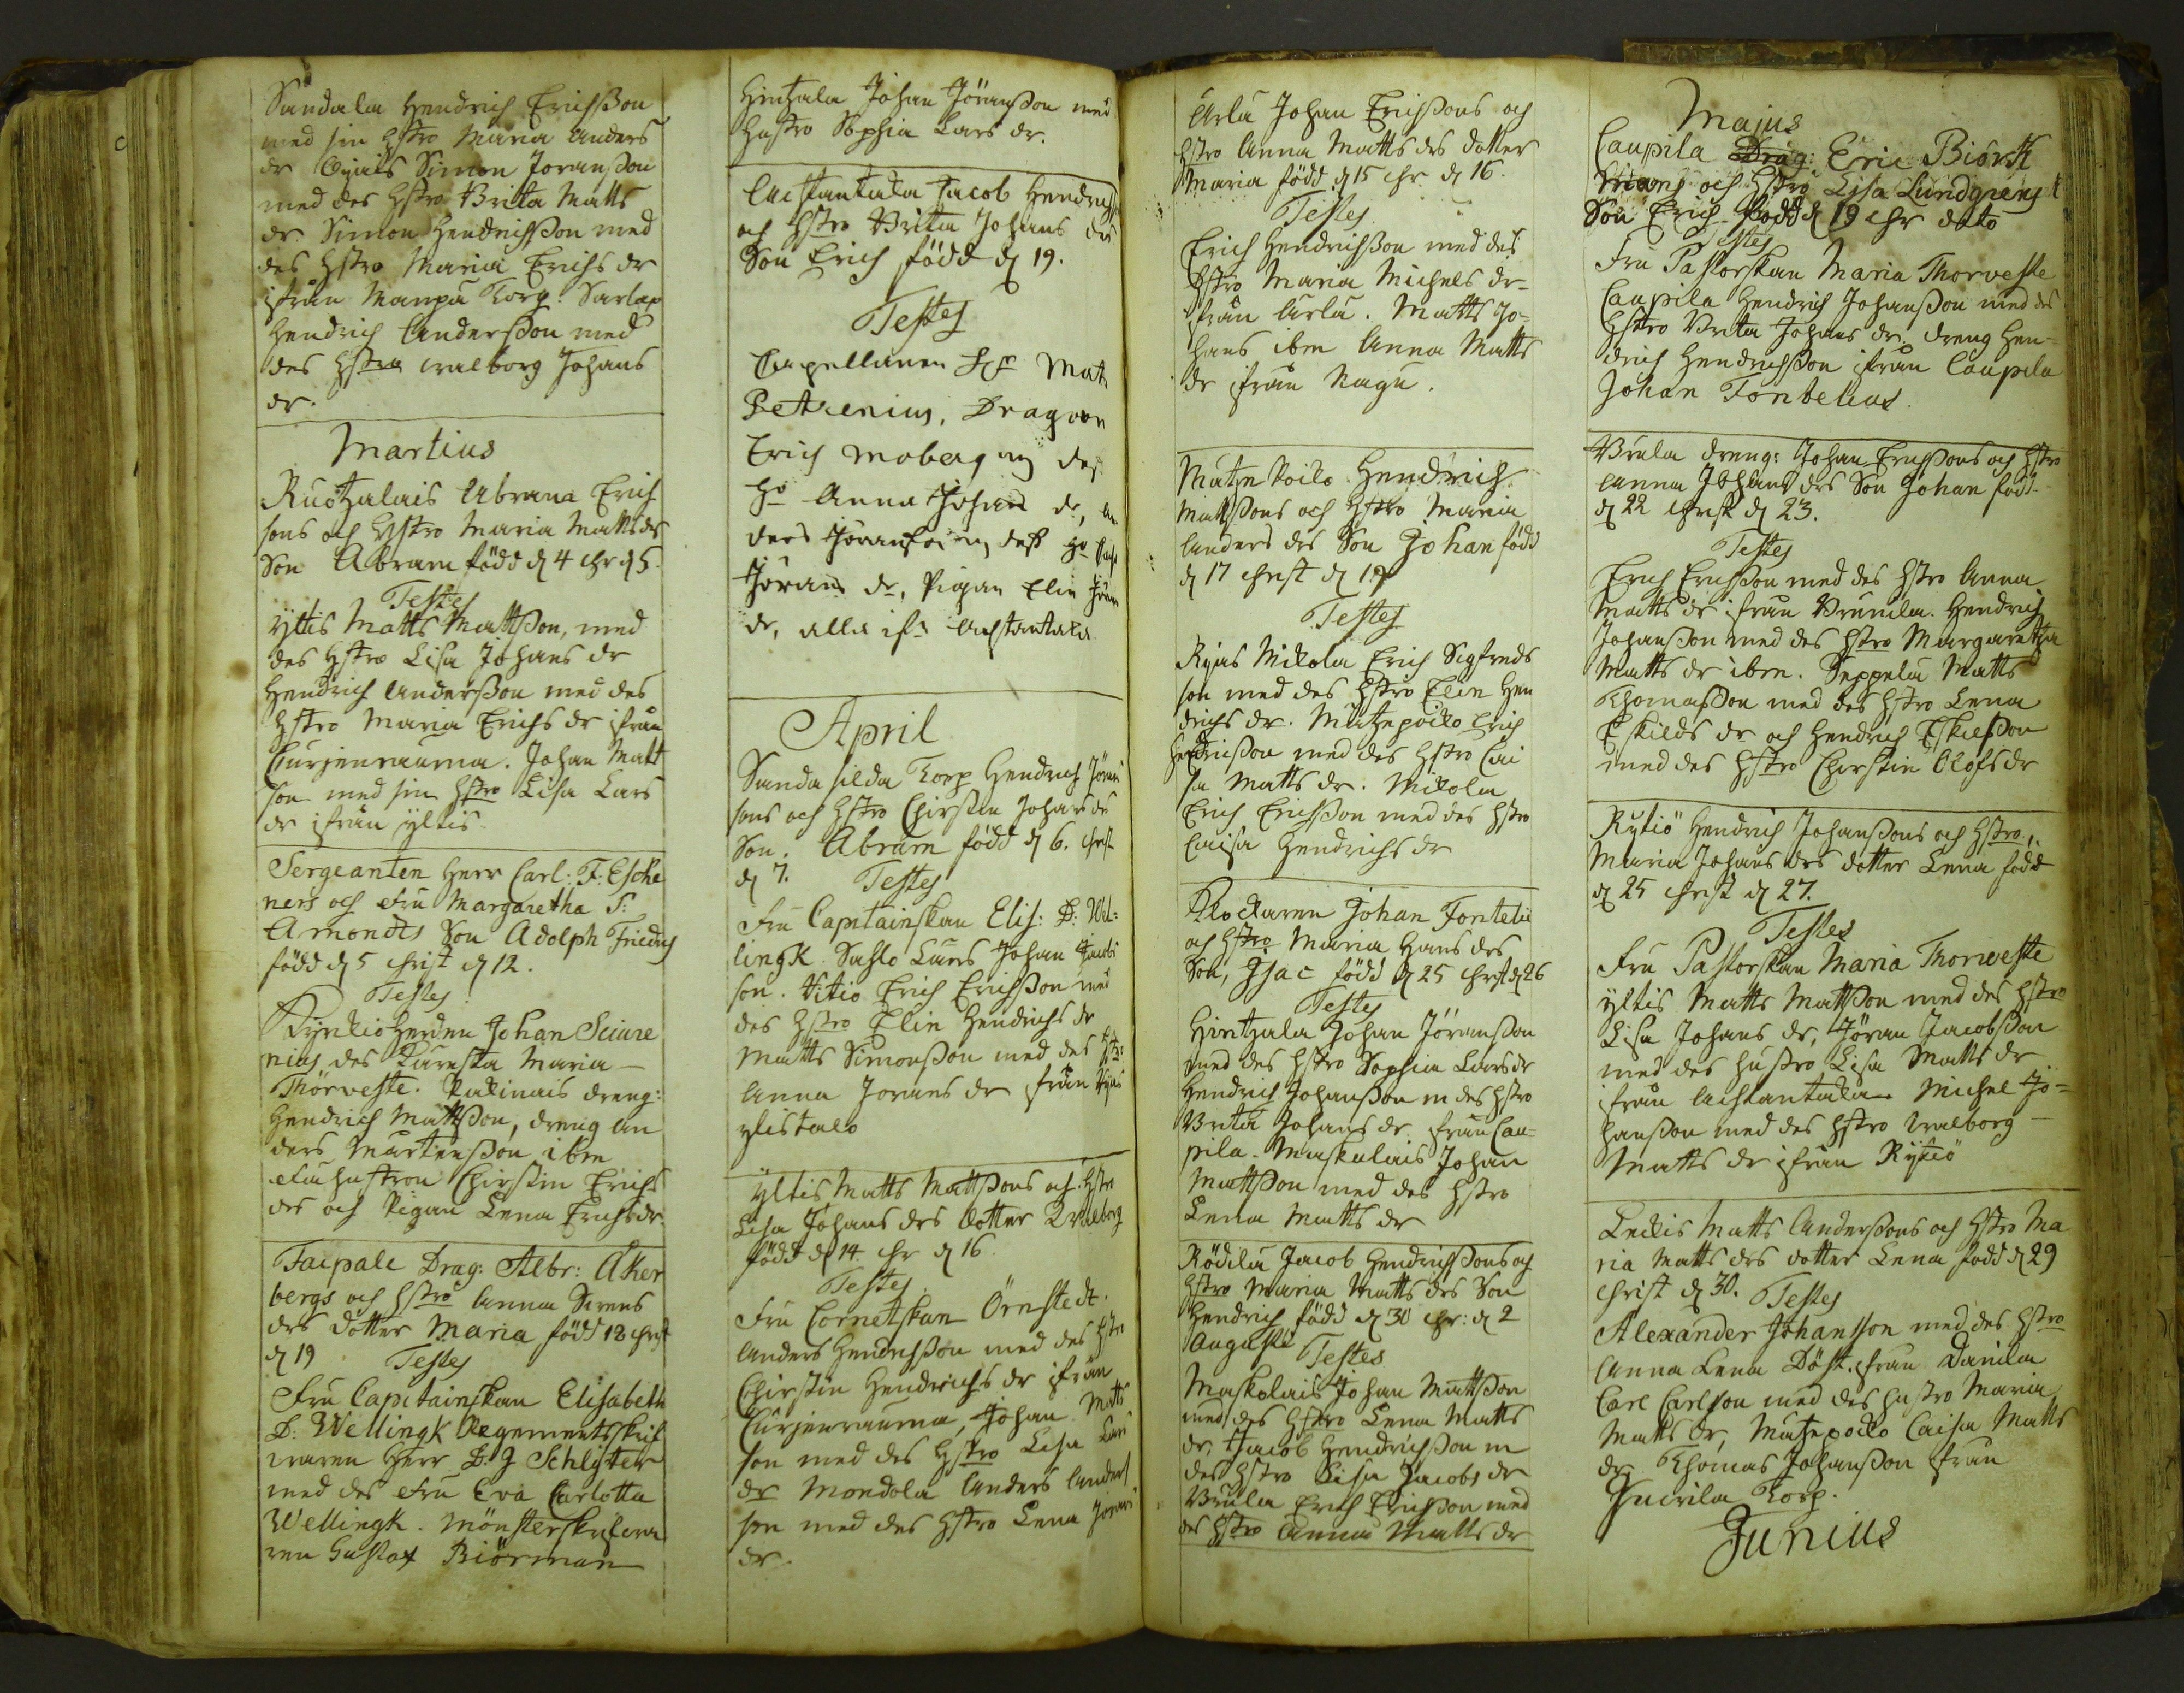 Sandala Hendrich Erichsson
med sin hstro Maria Anders
dr Ojais Simon Joransson
med des hstro Brita Matts
dr. Simon Hendrichsson med
des hstro Maria Erichs dr
ifrån Torp: Sarlax
Hendrich Andersson med
des hstro Walborg Johans
dr.
Martius
Abrams Erich
sons och hstro Maria Matts drs
Son Abram född d 4 chr d 5.
Testes
Yltis Matts Mattsson, med
des hstro Lisa Johans dr
Hendrich Andersson med des
hstro Maria Erichs dr ifrån
Curjenrauma. Johan Matt
son med sin hstro Lisa Lars
dr ifrån Yltis
Sergeanten Herr Carl: F: Esche
ners och Fru Margaretha S:
Amondts Son Adolph Friedrich
född d 5 christ d 12.
Testes
Kyrkioherden Johan Sciure
nius des Maria
Thorveste. dreng:
Hendrich Mattsson, dreng An
ders Martensson ibm
hustron Chirstin Erichs
drs och Pigan Lena Erichs dr.
Taipale Drag: Albr: Åker
bergs och hstro Anna Sirens
drs dotter Maria född 18 christ
d 19 Testes
Fru Capitainskan Elisabeth
D: Wellingk Regementsskrif
waren Herr D. J Schlyter
med des Fru Eva Carlotta
Wellingk. Mönsterskrifwa
ren Gustaf Biörman
Hintzala Johan Jöransson med
hustro Sophia Lars dr.
Achtantala Jacob Hendrichs
och hstro Brita Johans drs
Son Erich född d 19.
Testes
Capellanen Hr Mat
Petrenius, Dragoon
Erich Moberg och des
ho Anna Johans dr, An
ders Jöransson des ho
Jörans dr, Pigan Elin Jörans
dr, alla ifr Achtantala
April
Sandasilda Torp Hendrich Jöran
sons och hstro Chirstin Johans drs
Son. Abram född d 6. christ
d 7. Testes
Fru Capitainskan Elis: D: Wel:
lingk. Lars Johan Jacobs
son. Vitio Erich Erichsson med
des hstro Elin Hendrichs dr
Matts Simonsson med des hstr:
Anna Jorans dr ifrån
ylistalo
Yltis Matts Mattssons och hstro
Lisa Johans drs dotter Walborg
född d 14 chr d 16.
Testes
Fru Cornetskan Örnstedt.
Anders Hendrichsson med des hstro
Chirstin Hendrichs dr ifrån
Curjenrauma, Johan Matts
son med des hstro Lisa Lars
dr Mondola Anders Anders
son med des hstro Lena Jörans
dr.
Arla Johan Erichssons och
hstro Anna Matts drs dotter
Maria född d 15 chr d 16.
Testes
Erich Hendrichsson med des
hstro Maria Michels dr
ifrån Arla. Matts Jo=
hans ibm Anna Matts
dr ifrån Nagu.
Mätzepoilo Hendrich
Mattssons och hstro Maria
Anders drs Son Johan född
d 17 christ d 19
Testes
Ryias Mikola Erich Sigfreds
son med des hstro Elin Hen
drichs dr. Mätzepoiko Erich
Hendrichsson med des hstro Cai
sa Matts dr. Mikola
Erich Erichsson med des hstro
Caisa Hendrichs dr
Klockaren Johan Fontelii
och hstro Maria Hans drs
Son, Isac född d 25 christ d 26
Testes
Hintzala Johan Jöransson
med des hstro Sophia Lars dr
Hendrich Johansson m des hstro
Brita Johans dr. ifrån Cau=
pila. Maskulais Johan
Mattsson med des hstro
Lena Matts dr
Rödila Jacob Hendrichssons och
hstro Maria Matts drs Son
Hendrich född d 30 chr: d 2
Augusti Testes
Maskolais Johan Mattsson
med des hstro Lena Matts
dr, Jacob Hendrichsson m
des hstro Lisa Jacobs dr
Brula Erich Erichsson med
des hstro Anna Matts dr
Majus
Caupila Drag: Eric Biörk
och hstro Lisa Lundgrens
Son Erich född d 19 chr dito
Testes
Fru Pastorskan Maria Thorveste
Caupila Hendrich Johansson med des
hstro Brita Johans dr. dreng Hen=
drich Hendrichsson ifrån Caupila
Johan Fontelius.
Brula dreng: Johan Erichssons och hstro
Anna Johans drs Son Johan född
d 22 christ d 23.
Testes
Erich Erichsson med des hstro Anna
Matts dr ifrån Brunila. Hendrich
Johansson med des hstro Margaretha
Matts dr ibm. Seppela Matts
Thomasson med des hstro Lena
Eskilds dr och Hendrich Eskilsson
med des hstro Chirstin Olofs dr
Rytiö Hendrich Johanssons och hstro
Maria Johans drs dotter Lena född
d 25 christ d 27.
Testes
Fru Pastorskan Maria Thorweste
Yltis Matts Mattsson med des hstro
Lisa Johans dr, Jöran Jacobsson
med des hustro Lisa Matts dr
ifrån Achtantala Michel Jo=
hansson med des hstro Walborg
Matts dr ifrån Rytiö
Leikis Matts Anderssons och hstro Ma
ria Matts drs dotter Lena född d 29
christ d 30. Testes
Alexander Johansson med des hstro
Anna Lena Döst. ifrån Danila
Carl Carlsson med des hustro Maria
Matts dr, Mätzepoiko Caisa Matts
dr Thomas Johansson ifrån
Torp.
Junius